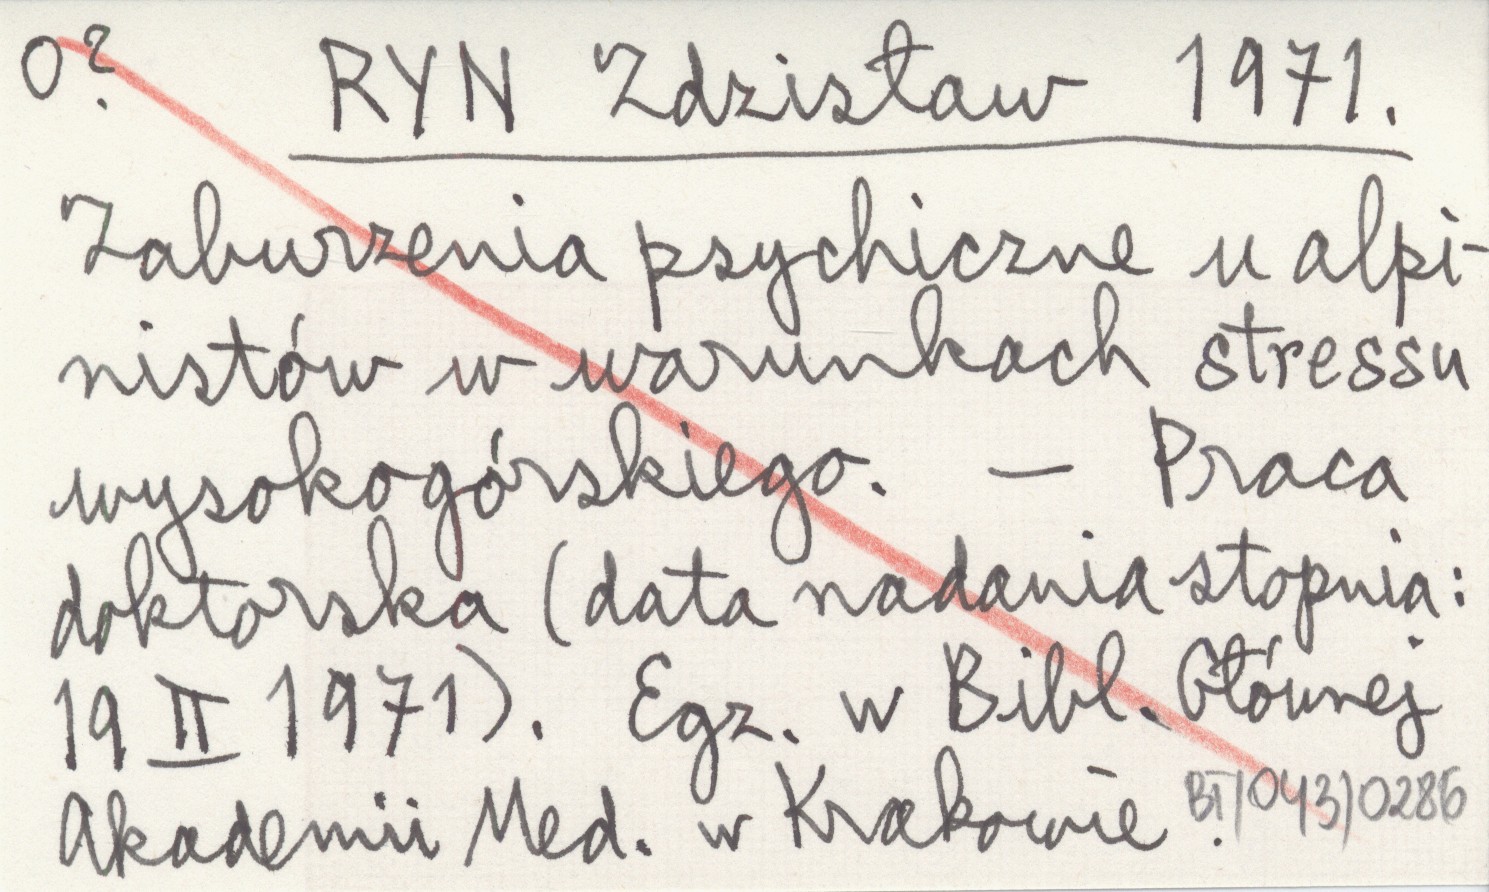 O? RYN Zdzisław 1971.
Zaburzenia psychiczne u alpi-
nistów w warunkach stressu
wysokogórskiego. — Praca
doktorska (data nadania stopnia:
19 II 1971). Egz. w Bibl. Głównej
Akademii Med. w Krakowie.
BT/043/0286